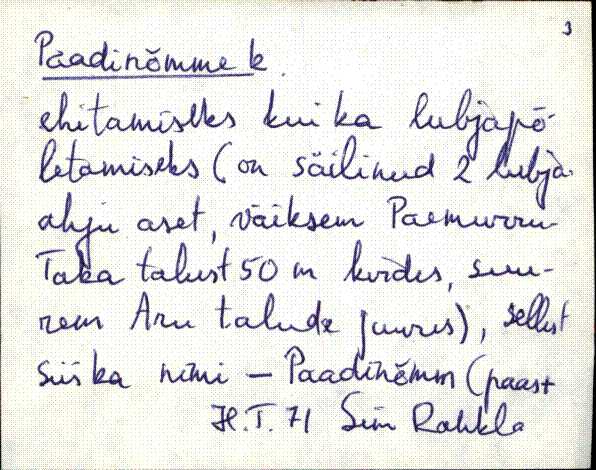 3
Paadinõmme k.
ehitamiseks kui ka lubjapõ-
letamiseks (on säilinud 2 lubja-
ahju aset, väiksem Paemurru-
Taka talust 50 m kirdes, suu-
rem Aru talude juures), sellest
siis ka nimi – Paadinõmm (paast
H.T. 71 Rahkla